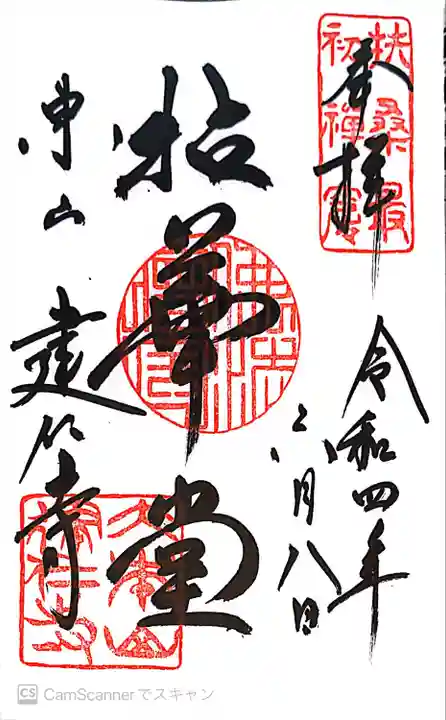 奉拝
扶桑最
初禅窟
令和四年
六月八日
拈華堂
東山
建仁寺
CamScannerでスキャン